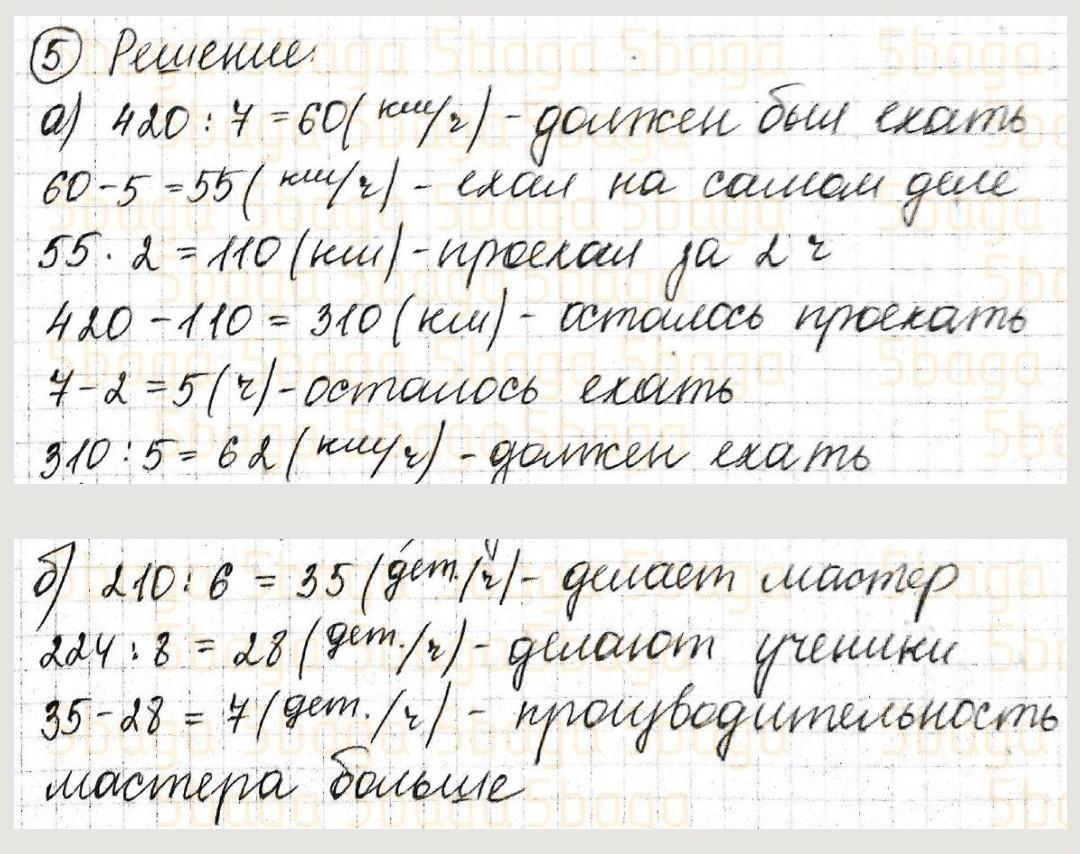 5 Решение:
а) 420 : 7 = 60 (км/ч) - должен был ехать
60 - 5 = 55 (км/ч) - ехал на самом деле
55 · 2 = 110 (км) - проехал за 2 ч
420 - 110 = 310 (км) - осталось проехать
7 - 2 = 5 (ч) - осталось ехать
310 : 5 = 62 (км/ч) - должен ехать
б) 210 : 6 = 35 (дет./ч) - делает мастер
224 : 8 = 28 (дет./ч) - делают ученики
35 - 28 = 7 (дет./ч) - производительность
мастера больше